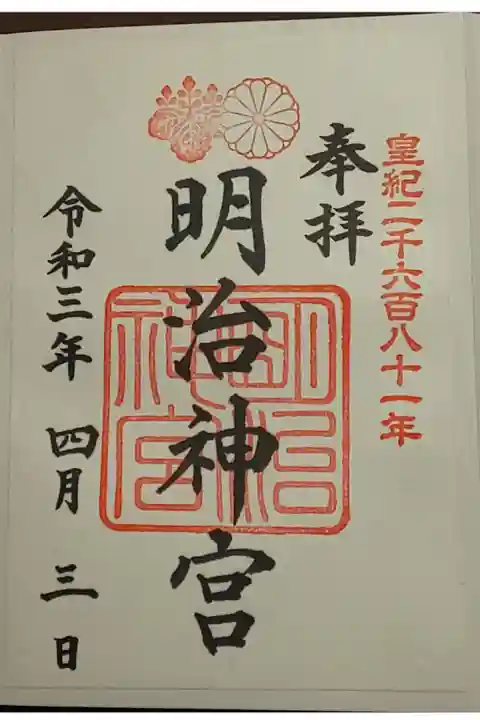 皇紀二千六百八十一年
奉拝
明治神宮
明治神宮
令和三年 四月 三日